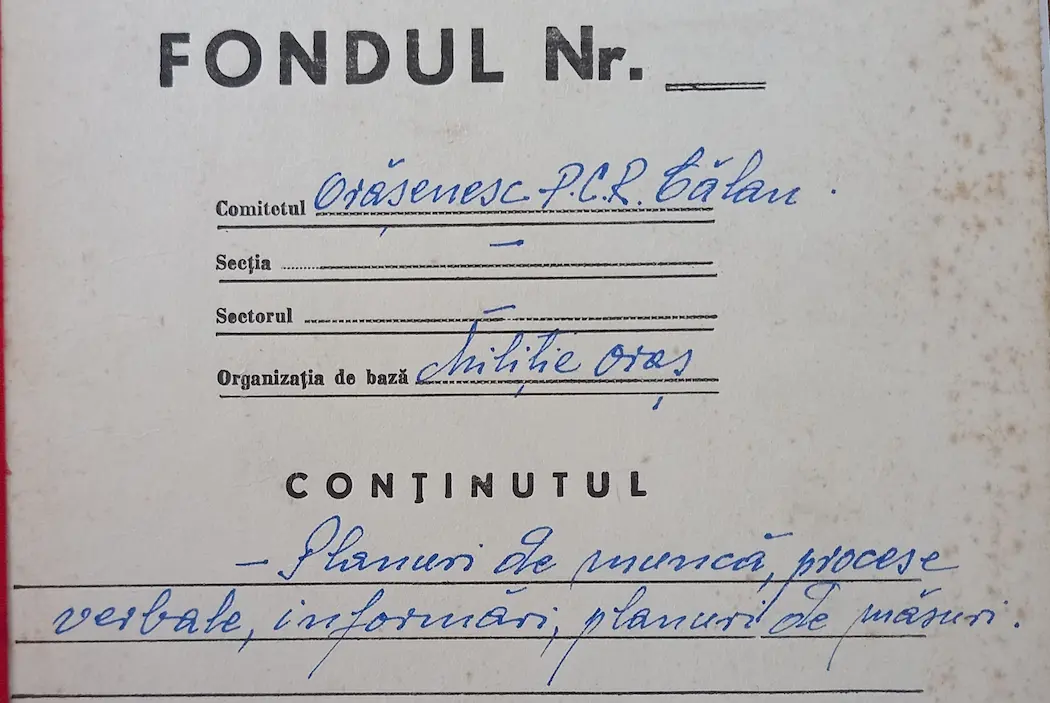 FONDUL Nr.
Comitetul Orășenesc P.C.R. Călan.
Secția —
Sectorul —
Organizația de bază Miliție oraș
CONȚINUTUL
– Planuri de muncă, procese
verbale, informări, planuri de măsuri.